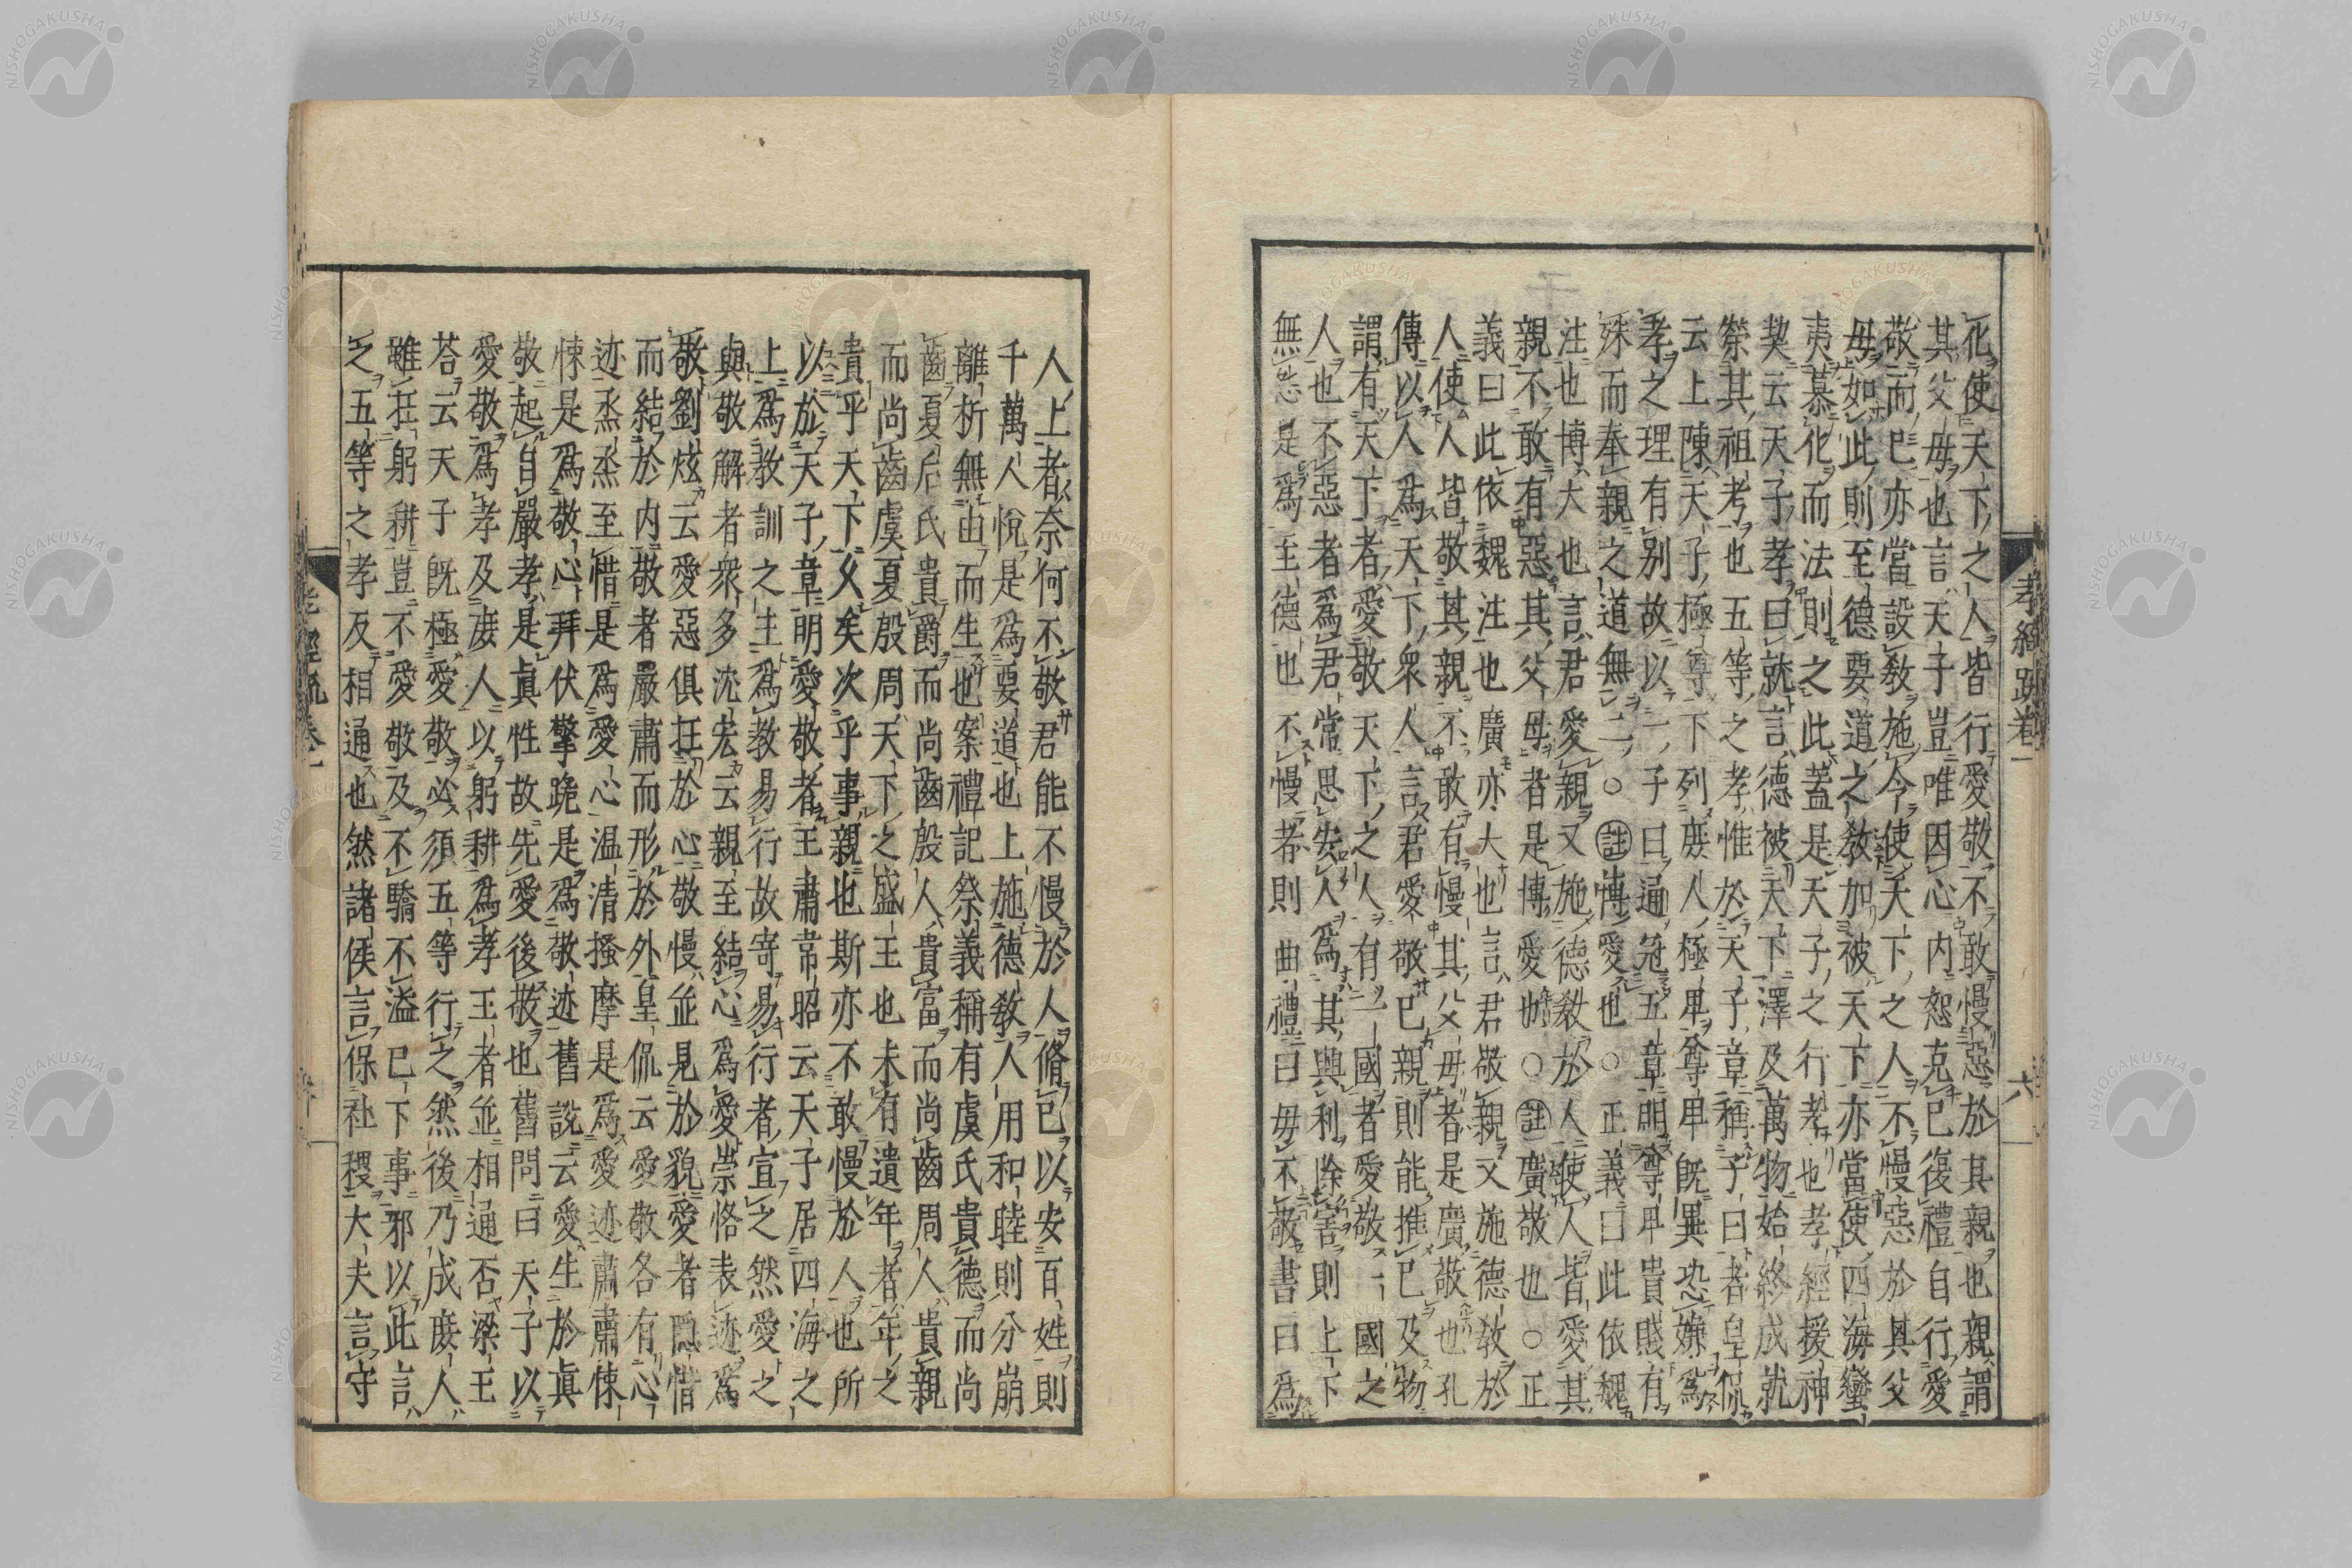 化使天下之人皆行愛敬不敢慢惡於其親也親謂
其父母也言天子豈唯因心内恕克已復禮自行愛
敬而已亦當設教施令使天下之人不慢惡於其父
母如此則至德要道之教加被天下亦當使四海蠻
夷慕化而法則之此蓋是天子之行孝也孝經援神
契云天子孝曰就言德被天下澤及萬物始終成就
榮其祖考也五等之孝惟於天子章稱子曰者皇侃
云上陳天子極尊下列庶人極卑尊卑既異恐嫌爲
孝之理有别故以一子曰通冠五章明尊卑貴賤有
殊而奉親之道無二○註博愛也○正義曰此依魏
注也博大也言君愛親又施德教於人使人皆愛其
親不敢有惡其父母者是博愛也○註廣敬也○正
義曰此依魏注也廣亦大也言君敬親又施德教於
人使人皆敬其親不敢有慢其父母者是廣敬也孔
傳以人爲天下衆人言君愛敬已親則能推已及物
謂有天下者愛敬天下之人有一國者愛敬一國之
人也不惡者爲君常思安人爲其興利除害則上下
無怨是爲至德也不慢者則曲禮曰毋不敬書曰爲
孝經疏卷一
六
人上者奈何不敬君能不慢於人脩已以安百姓則
千萬人悅是爲要道也上施德教人用和睦則分崩
離析無由而生也案禮記祭義稱有虞氏貴德而尚
齒夏后氏貴爵而尚齒殷人貴富而尚齒周人貴親
而尚齒虞夏殷周天下之盛王也未有遺年者年之
貴乎天下乆矣次乎事親也斯亦不敢慢於人也所
以於天子章明愛敬者王肅常昭云天子居四海之
上爲教訓之主爲教易行故寄易行者宣之然愛之
與敬解者衆多沈宏云親至結心爲愛崇恪表迹爲
敬劉炫云愛惡俱在於心敬慢並見於貌愛者隠惜
而結於内敬者嚴肅而形於外皇侃云愛敬各有心
迹烝烝至惜是爲愛心温清搔摩是爲愛迹肅肅悚
悚是爲敬心拜伏擎跪是爲敬迹舊說云愛生於眞
敬起自嚴孝是眞性故先愛後敬也舊問曰天子以
愛敬爲孝及庶人以躬耕爲孝王者並相通否梁王
荅云天子既極愛敬必須五等行之然後乃成庶人
雖在躬耕豈不愛敬及不驕不溢已下事邪以此言
之五等之孝反相通也然諸侯言保社稷大夫言守
孝經疏卷一